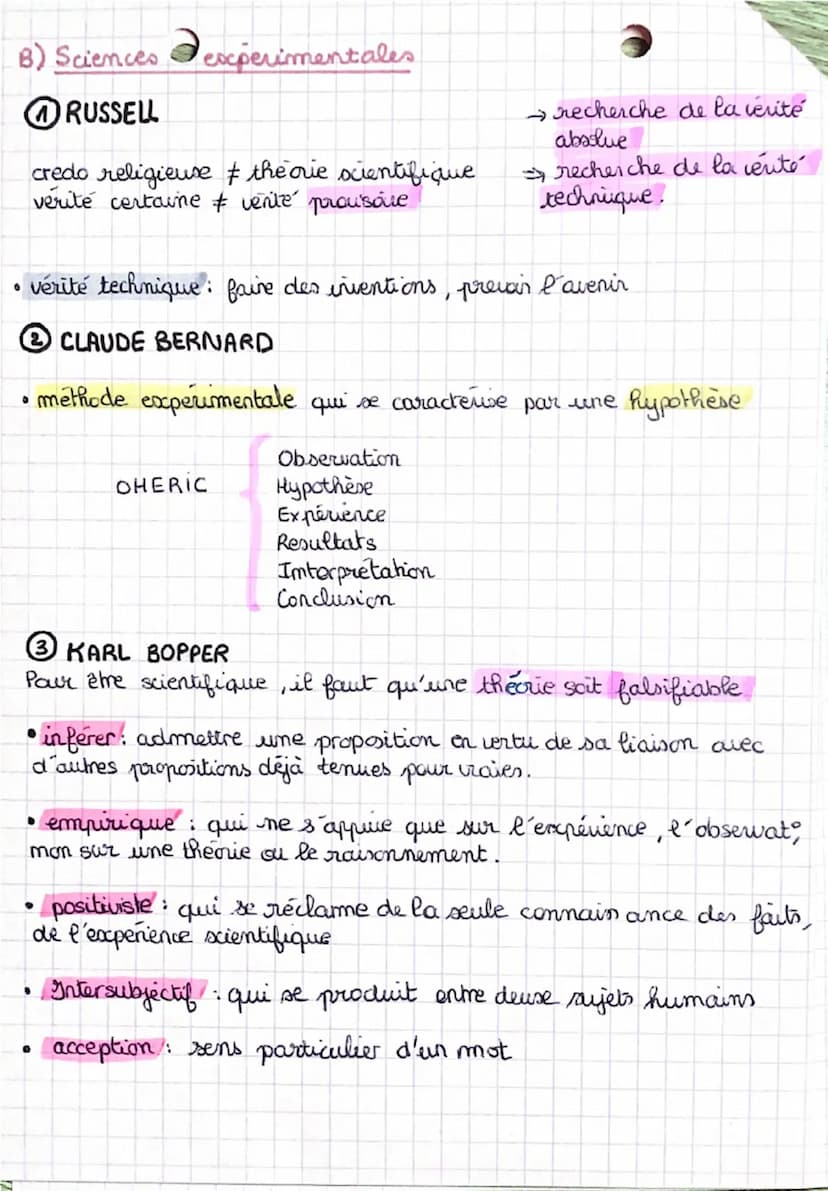 B) Sciences expérimentales
① RUSSELL
→ recherche de la vérité
absolue
credo religieuse ≠ théorie scientifique
⇒ recherche de la vérité
vérité certaine ≠ vérité provisoire
technique.
• vérité technique : faire des inventions, prévoir l'avenir
② CLAUDE BERNARD
• méthode expérimentale qui se caractérise par une hypothèse
OHERIC
Observation
Hypothèse
Expérience
Resultats
Interprétation
Conclusion
③ KARL BOPPER
Pour être scientifique, il faut qu'une théorie soit falsifiable
• inférer : admettre une proposition en vertu de sa liaison avec
d'autres propositions déjà tenues pour vraies.
• empirique : qui ne s'appuie que sur l'expérience, l'observat°,
non sur une théorie ou le raisonnement.
• positiviste : qui se réclame de la seule connaissance des faits,
de l'expérience scientifique
• Intersubjéctif : qui se produit entre deux sujets humains
• acception : sens particulier d'un mot